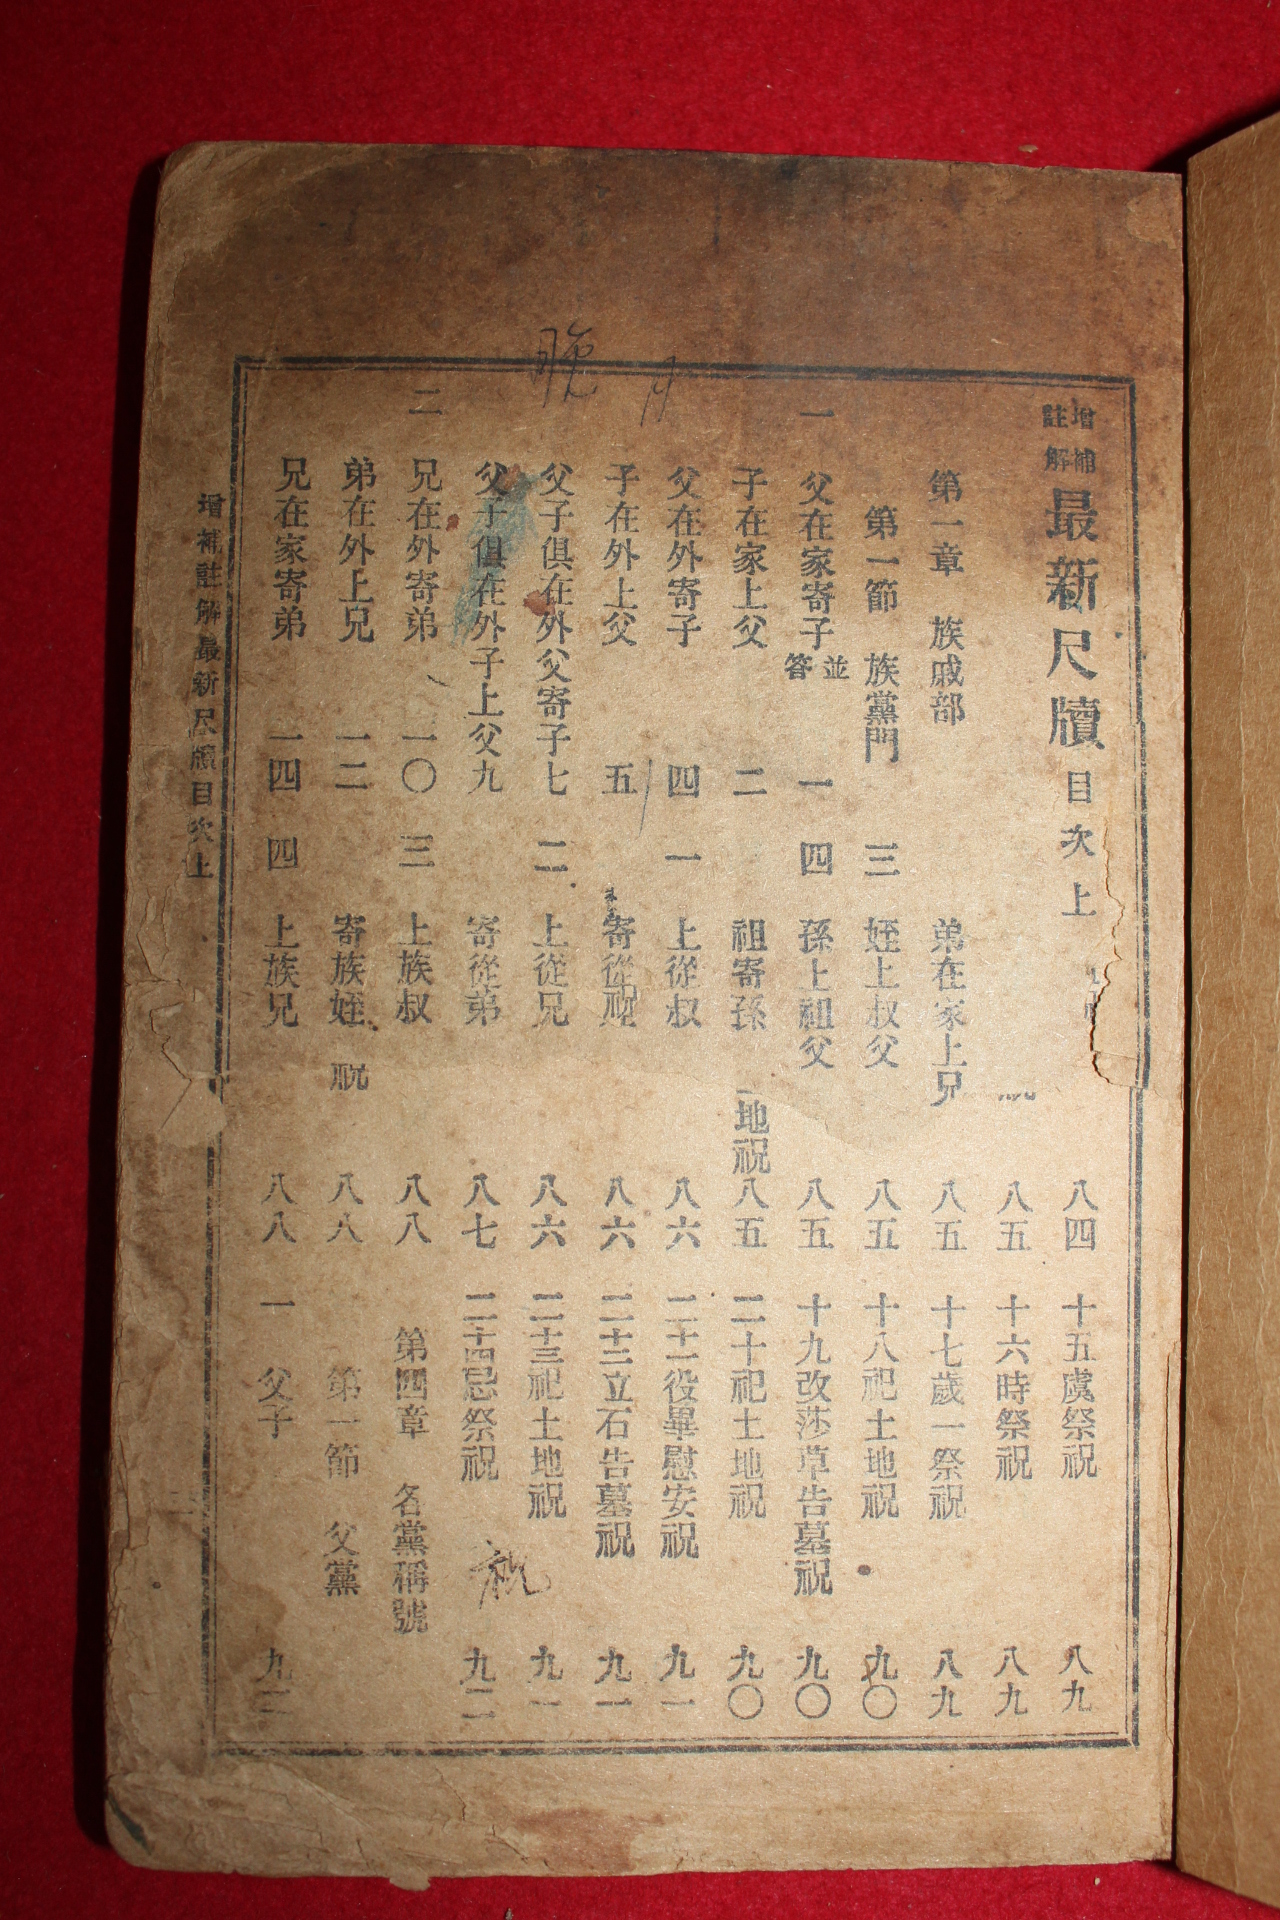 增補註解 最新尺牘目次上
第一章 族戚部
第一節 族黨門
一 父在家寄子 並答 一
子在家上父 二
父在外寄子 四
子在外上父 五
父子俱在外父寄子 七
父子俱在外子上父 九
二 兄在外寄弟 一〇
弟在外上兄 一二
兄在家寄弟 一四
弟在家上兄
三 姪上叔父
四 孫上祖父
祖寄孫
一 上從叔
寄從
二 上從兄
寄從弟
三 上族叔
寄族姪
四 上族兄
八四
八五
八五
八五
八五
地祝 八五
八六
八六
八六
八七
八八
祝 八八
八八
十五虞祭祝 八九
十六時祭祝 八九
十七歲一祭祝 八九
十八祀土地祝 九〇
十九改莎草告墓祝 九〇
二十祀土地祝 九〇
二十一役畢慰安祝 九一
二十二立石告墓祝 九一
二十三祀土地祝 九一
二十四忌祭祝 九二
祝
第四章 各黨稱號
第一節 父黨
一 父子 九二
晩 月
增補註解最新尺牘目次上